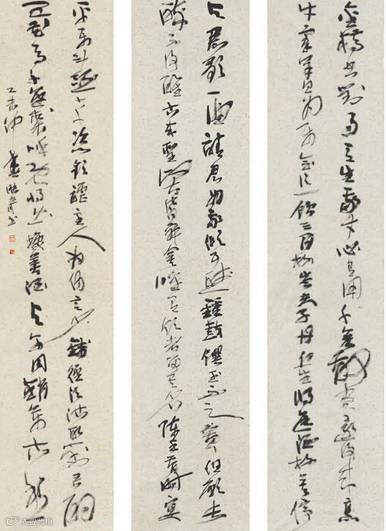 金樽空對月天生我才必有用千金散盡還復來烹
牛宰羊且為樂會須一飲三百杯岑夫子丹丘生將進酒杯莫停
與君歌一曲請君為我傾耳聽鐘鼓饌玉不足貴但願長
醉不復醒古來聖賢皆寂寞惟有飲者留其名陳王昔時宴
平樂斗酒十千恣歡謔主人為何言少錢徑須沽取對君酌
五花馬千金裘呼兒將出換美酒與爾同銷萬古愁